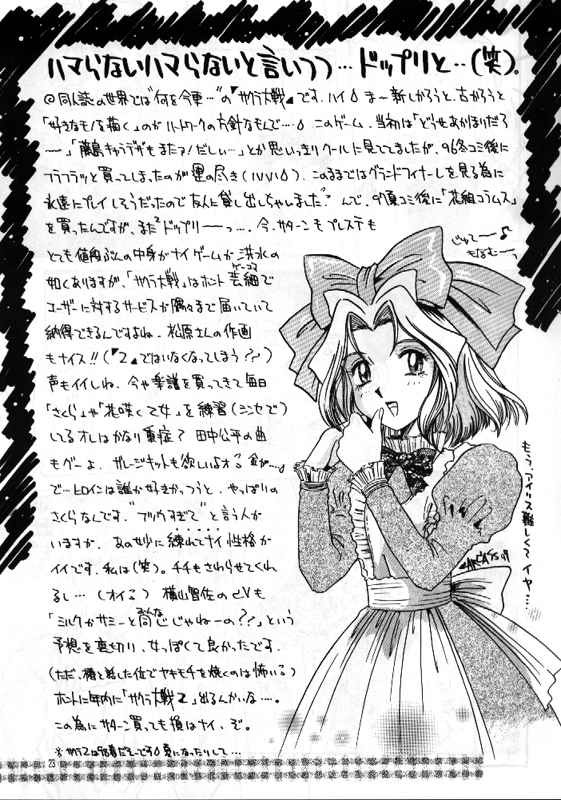 ハマらないハマらないと言いつつ…ドップリと‥(笑)。
◎同人誌の世界では"何を今更…"の『サクラ大戦』です、ハイ。ま〜新しかろうと、古かろうと
「好きなモノを描く」のが の方針なもんで…。このゲーム、当初は「どうせあかほりだろ
〜」「藤島キャラデザもまたァ!だしぃ…」とか思いっきりクールに見てましたが、'96冬コミ後に
フラフラッと買ってしまったのが運の尽き(ハハハ)。このままではグランドフィナーレを見る為に
永遠にプレイしそうだったので友人に貸し出しちゃいました。んで、 コミ後に「花組コラムス」
を買ったんですが、またドップリ〜〜っ…。今、サターンもプレステも
とても値段ぶんの中身がナイゲームが洪水の
如くありますが、「サクラ大戦」はホント芸細で
ユーザーに対するサービスが隅々まで届いていて
納得できるんですよね。松原さんの作画
もナイス!!(『2』ではいなくなってしまう??)
声もイイしね。今や楽譜を買ってきて毎日
「さくら」や「花咲く乙女」を練習(シンセで)
してるオレはかなり重症?田中公平の曲
もグーよ。ガレージキットも欲しいよォ 金が…。
で…ヒロインは誰が好きかっつうと、やっぱりの
さくらなんです。"フツウすぎて"と言う人が
いますが、あの妙に練れてナイ性格が
イイです、私は(笑)。チチもさわらせてくれ
るし…(オイ)横山智佐のCVも
「ミルクかサミーと同じ感じじゃねーの??」という
予想を裏切り、女っぽくて良かったです。
(ただ、椿と話した位でヤキモチを焼くのは怖いる)
ホントに年内に「サクラ大戦2」出るんかいな…。
この為にサターン買っても損はナイ、ぞ。
じゅて〜♪
もなむ〜っ
もう、アイリス難しくてイヤ…。
23